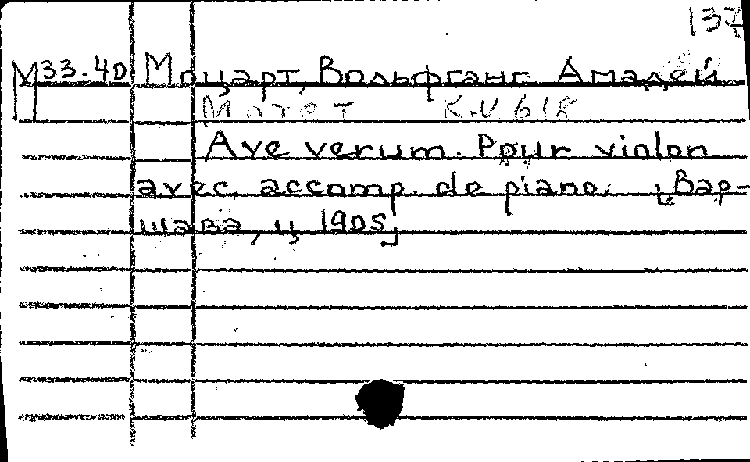 137
М33.40 Моцарт, Вольфганг Амадей
Мотет K.V 618
Ave verum. Pour violon
avec accomp. de piano. [Вар-
шава, ц. 1905]